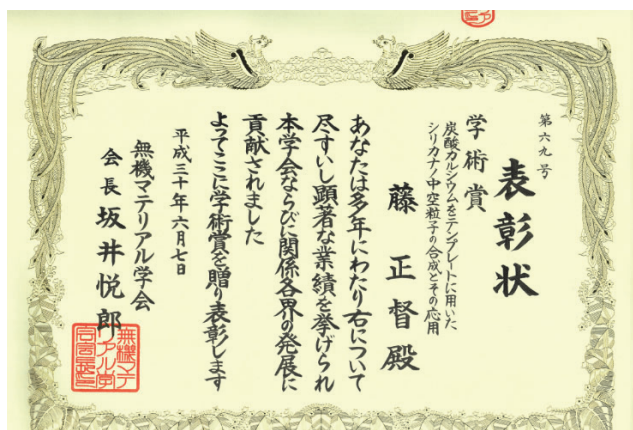 第六九号
表彰状
学術賞
炭酸カルシウムをテンプレートに用いた
シリカナノ中空粒子の合成とその応用
藤正督殿
あなたは多年にわたり右について
尽すいし顕著な業績を挙げられ
本学会ならびに関係各界の発展に
貢献されました
よってここに学術賞を贈り表彰します
平成三十年六月七日
無機マテリアル学会
会長坂井悦郎
無機マテ
リアル学